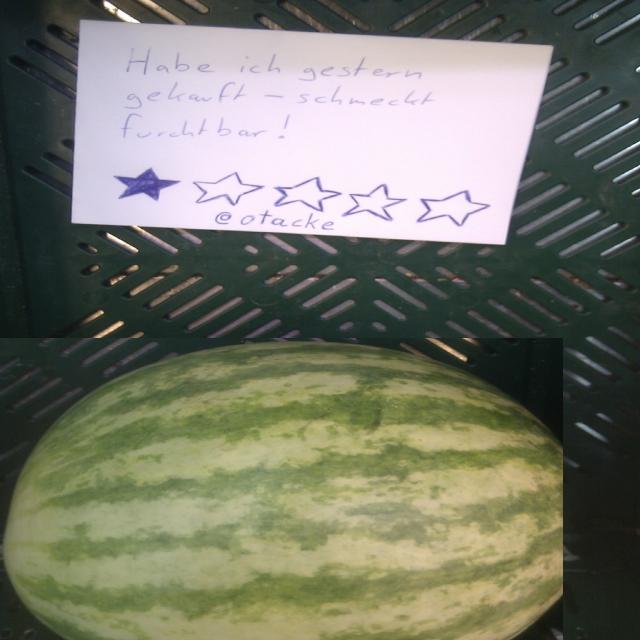 Habe ich gestern
gekauft – schmeckt
furchtbar!
@otacke